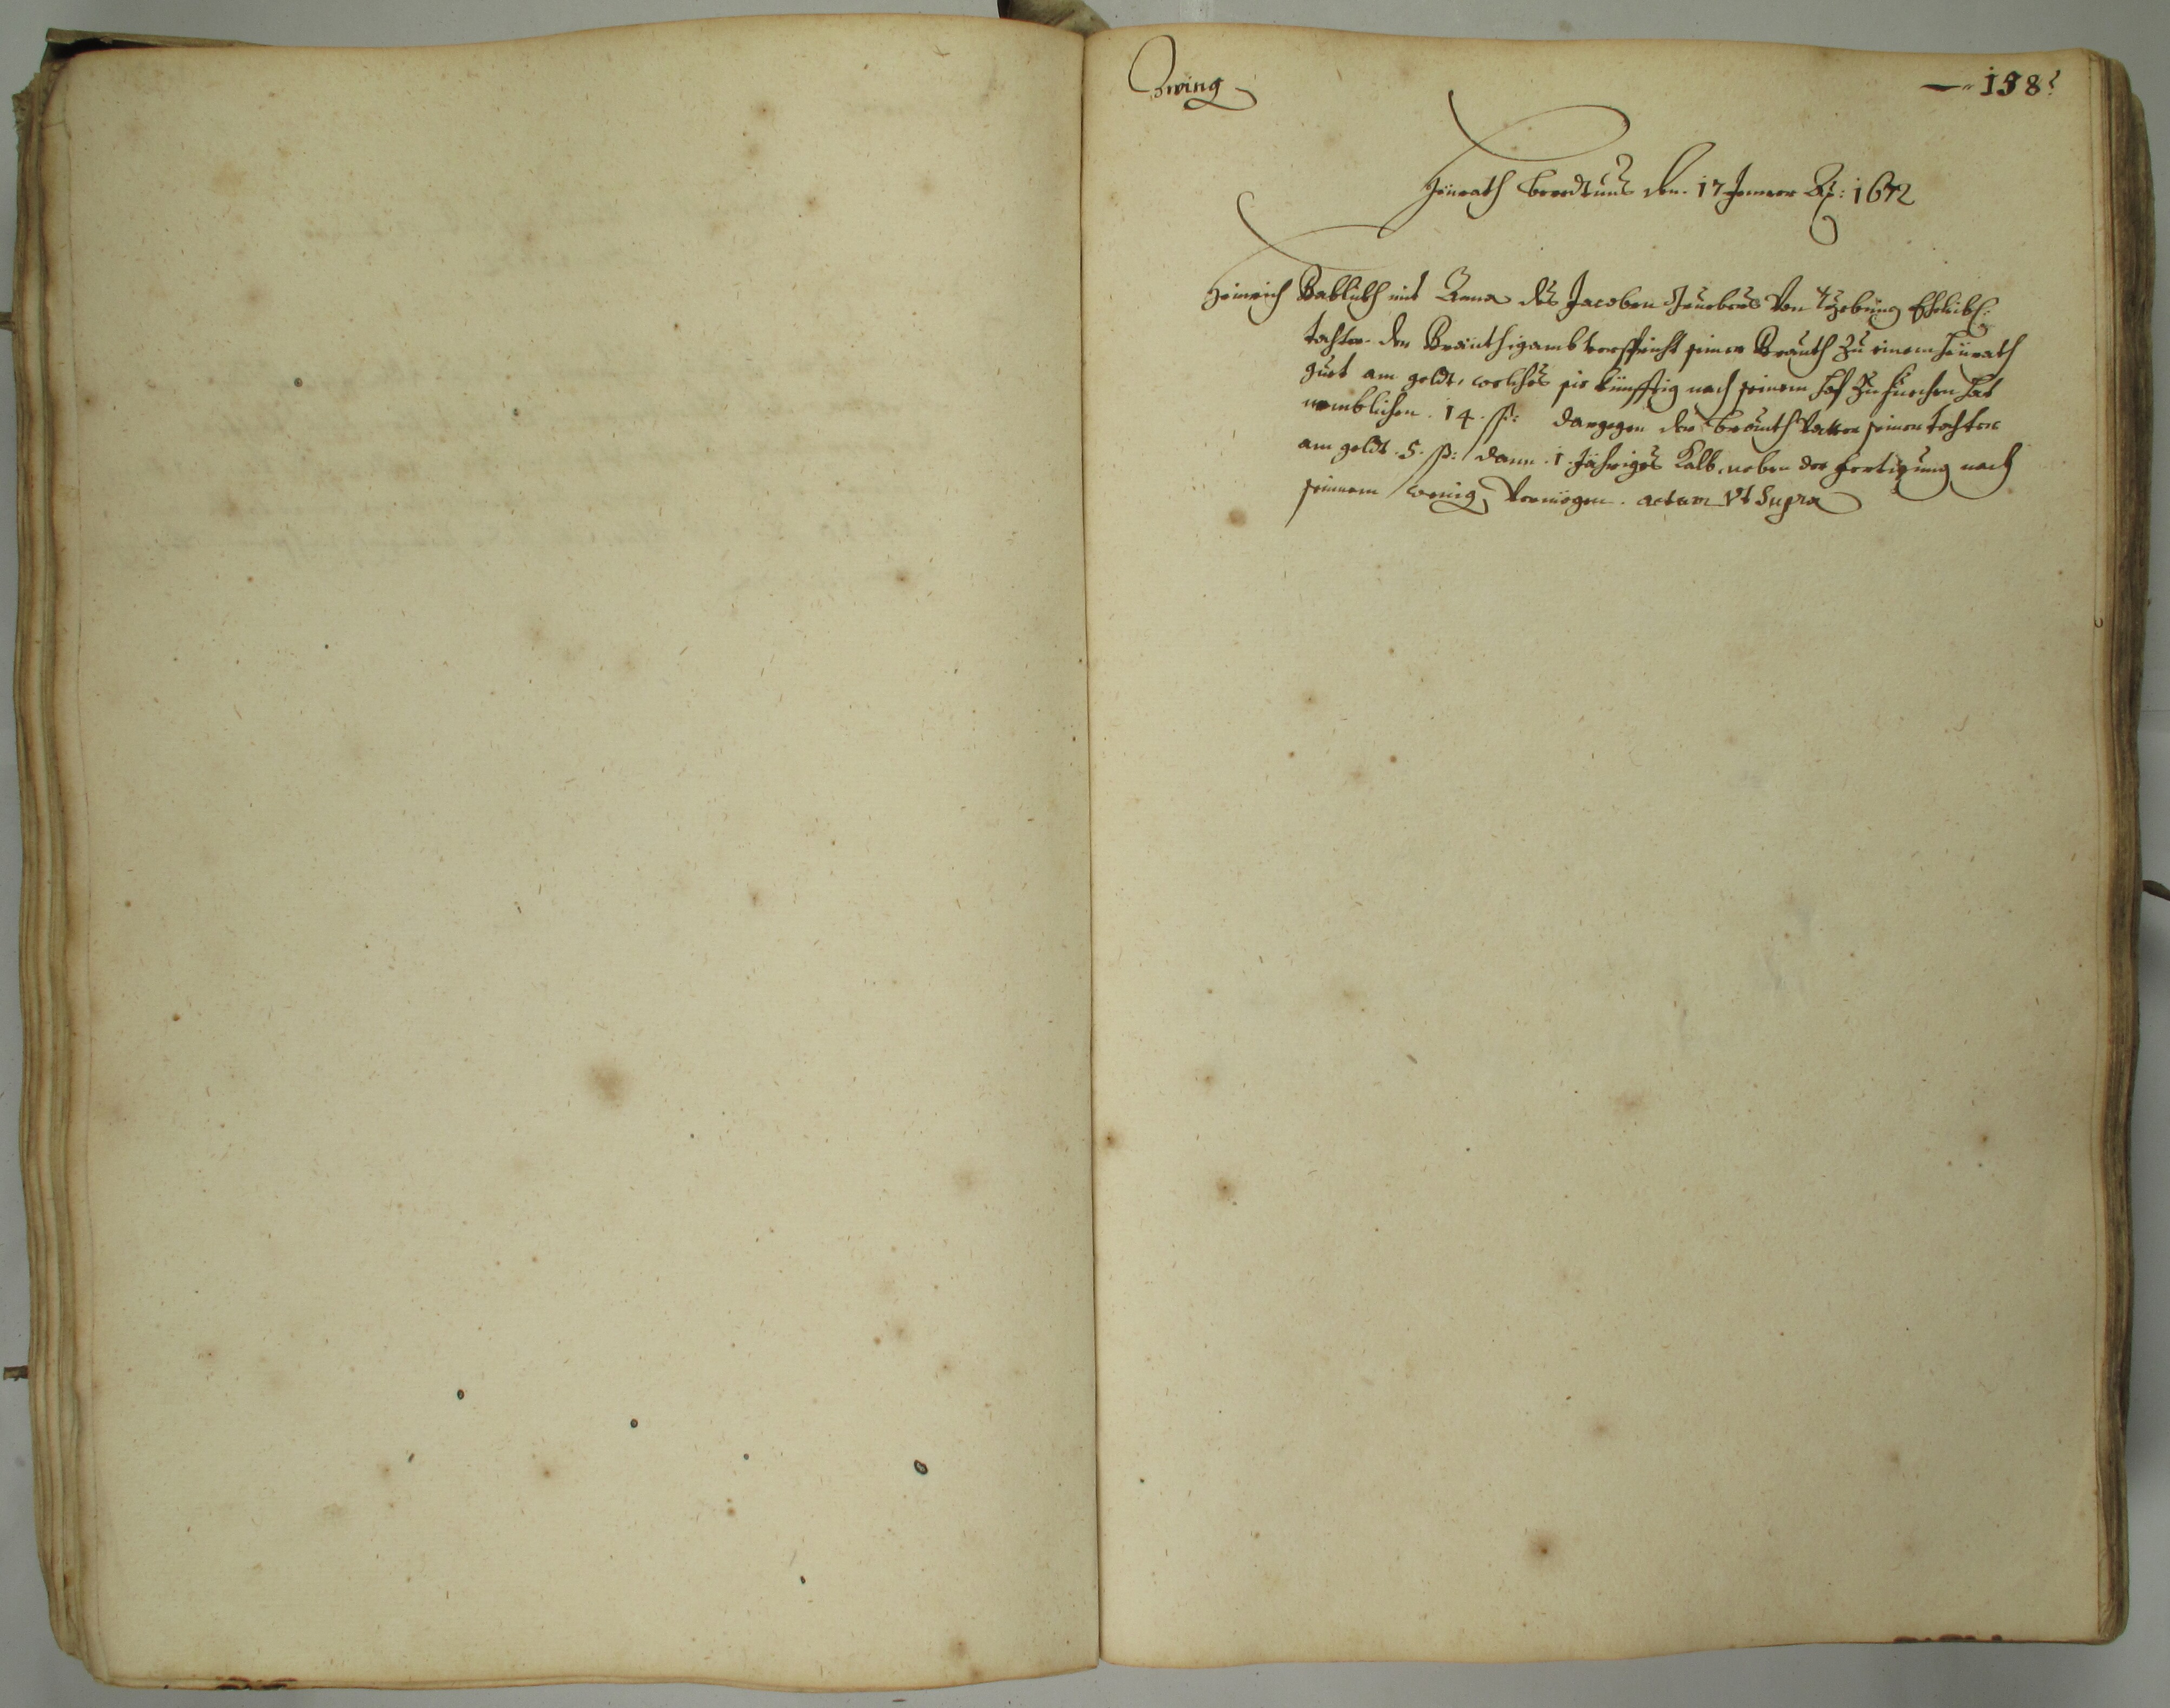 Zwing
158
Heürath beredtnus den 17 Jenner Aõ: 1672
Heinrich Babluth mit Anna des Jacoben Von Ehelibl:
tochter. der Bräuthigamb verspricht seiner Brauth zu einem heürath
guet am geldt, welches sie künfftig nach seinem hof zu suechen hat
nemblichen . 14 . ß: dargegen der brauth Vatter seiner tochter
am geldt . 5 . ß: dann . 1 . Jähriges Kalb, neben der ferttigung nach
seinem wenig Vermögen . actum Vt Supra